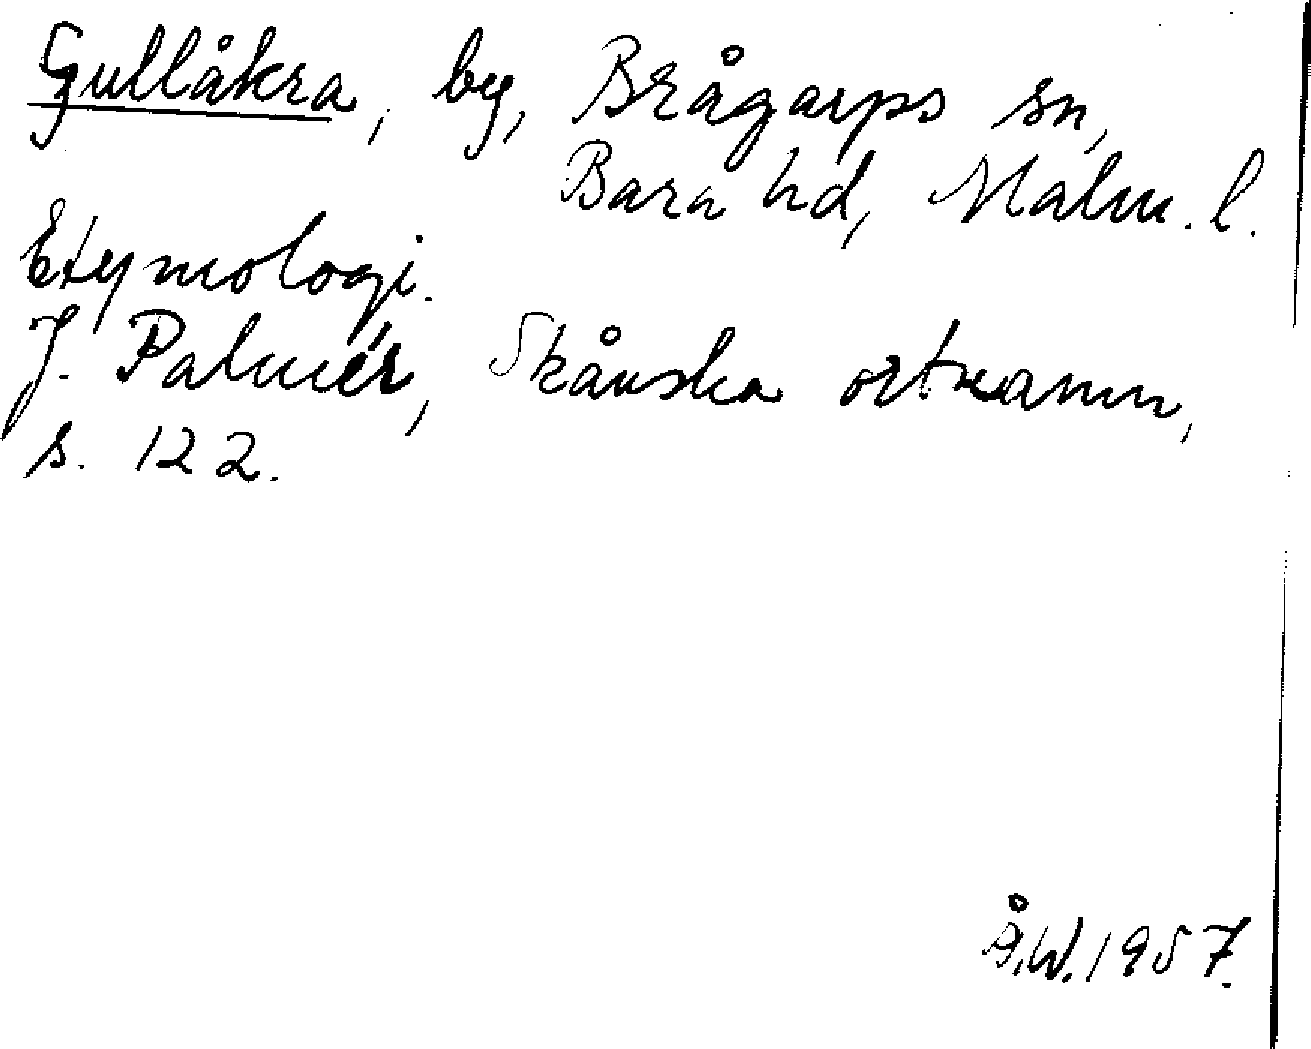 Gullåkra, by, Brågarps sn,
Bara hd, Malm. l.
Etymologi.
J. Palmér, Skånska ortnamn,
s. 122.
Å.W. 1957.